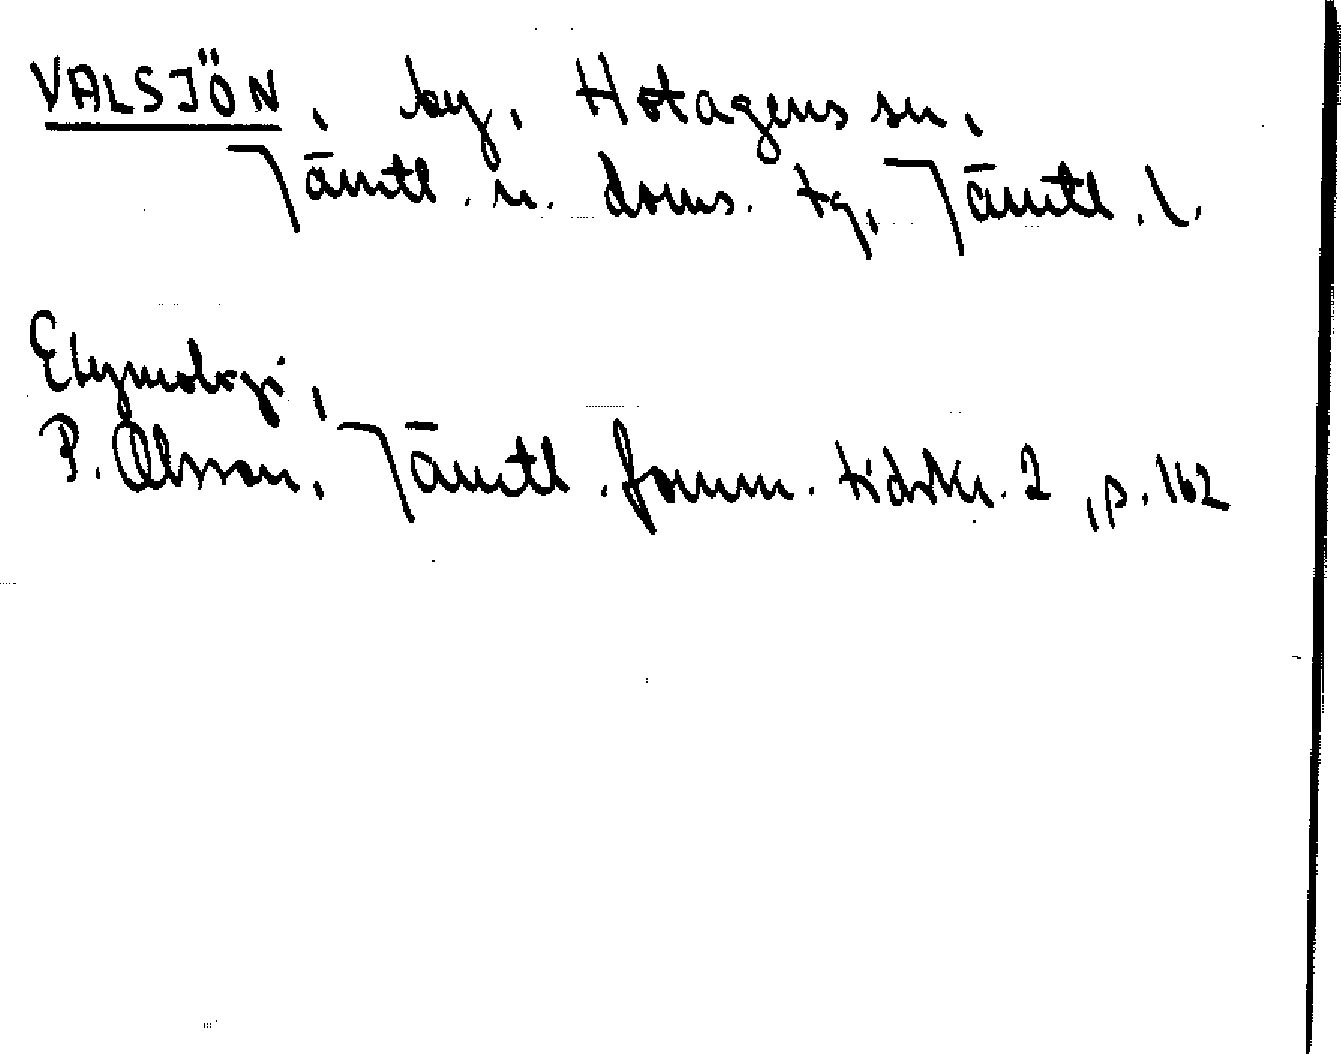 VALSJÖN, by, Hotagens sn,
Jämtl. n. doms. tg, Jämtl. l.
Etymologi,
P. Olsson, Jämtl. fornm. tidskr. 2, p. 162